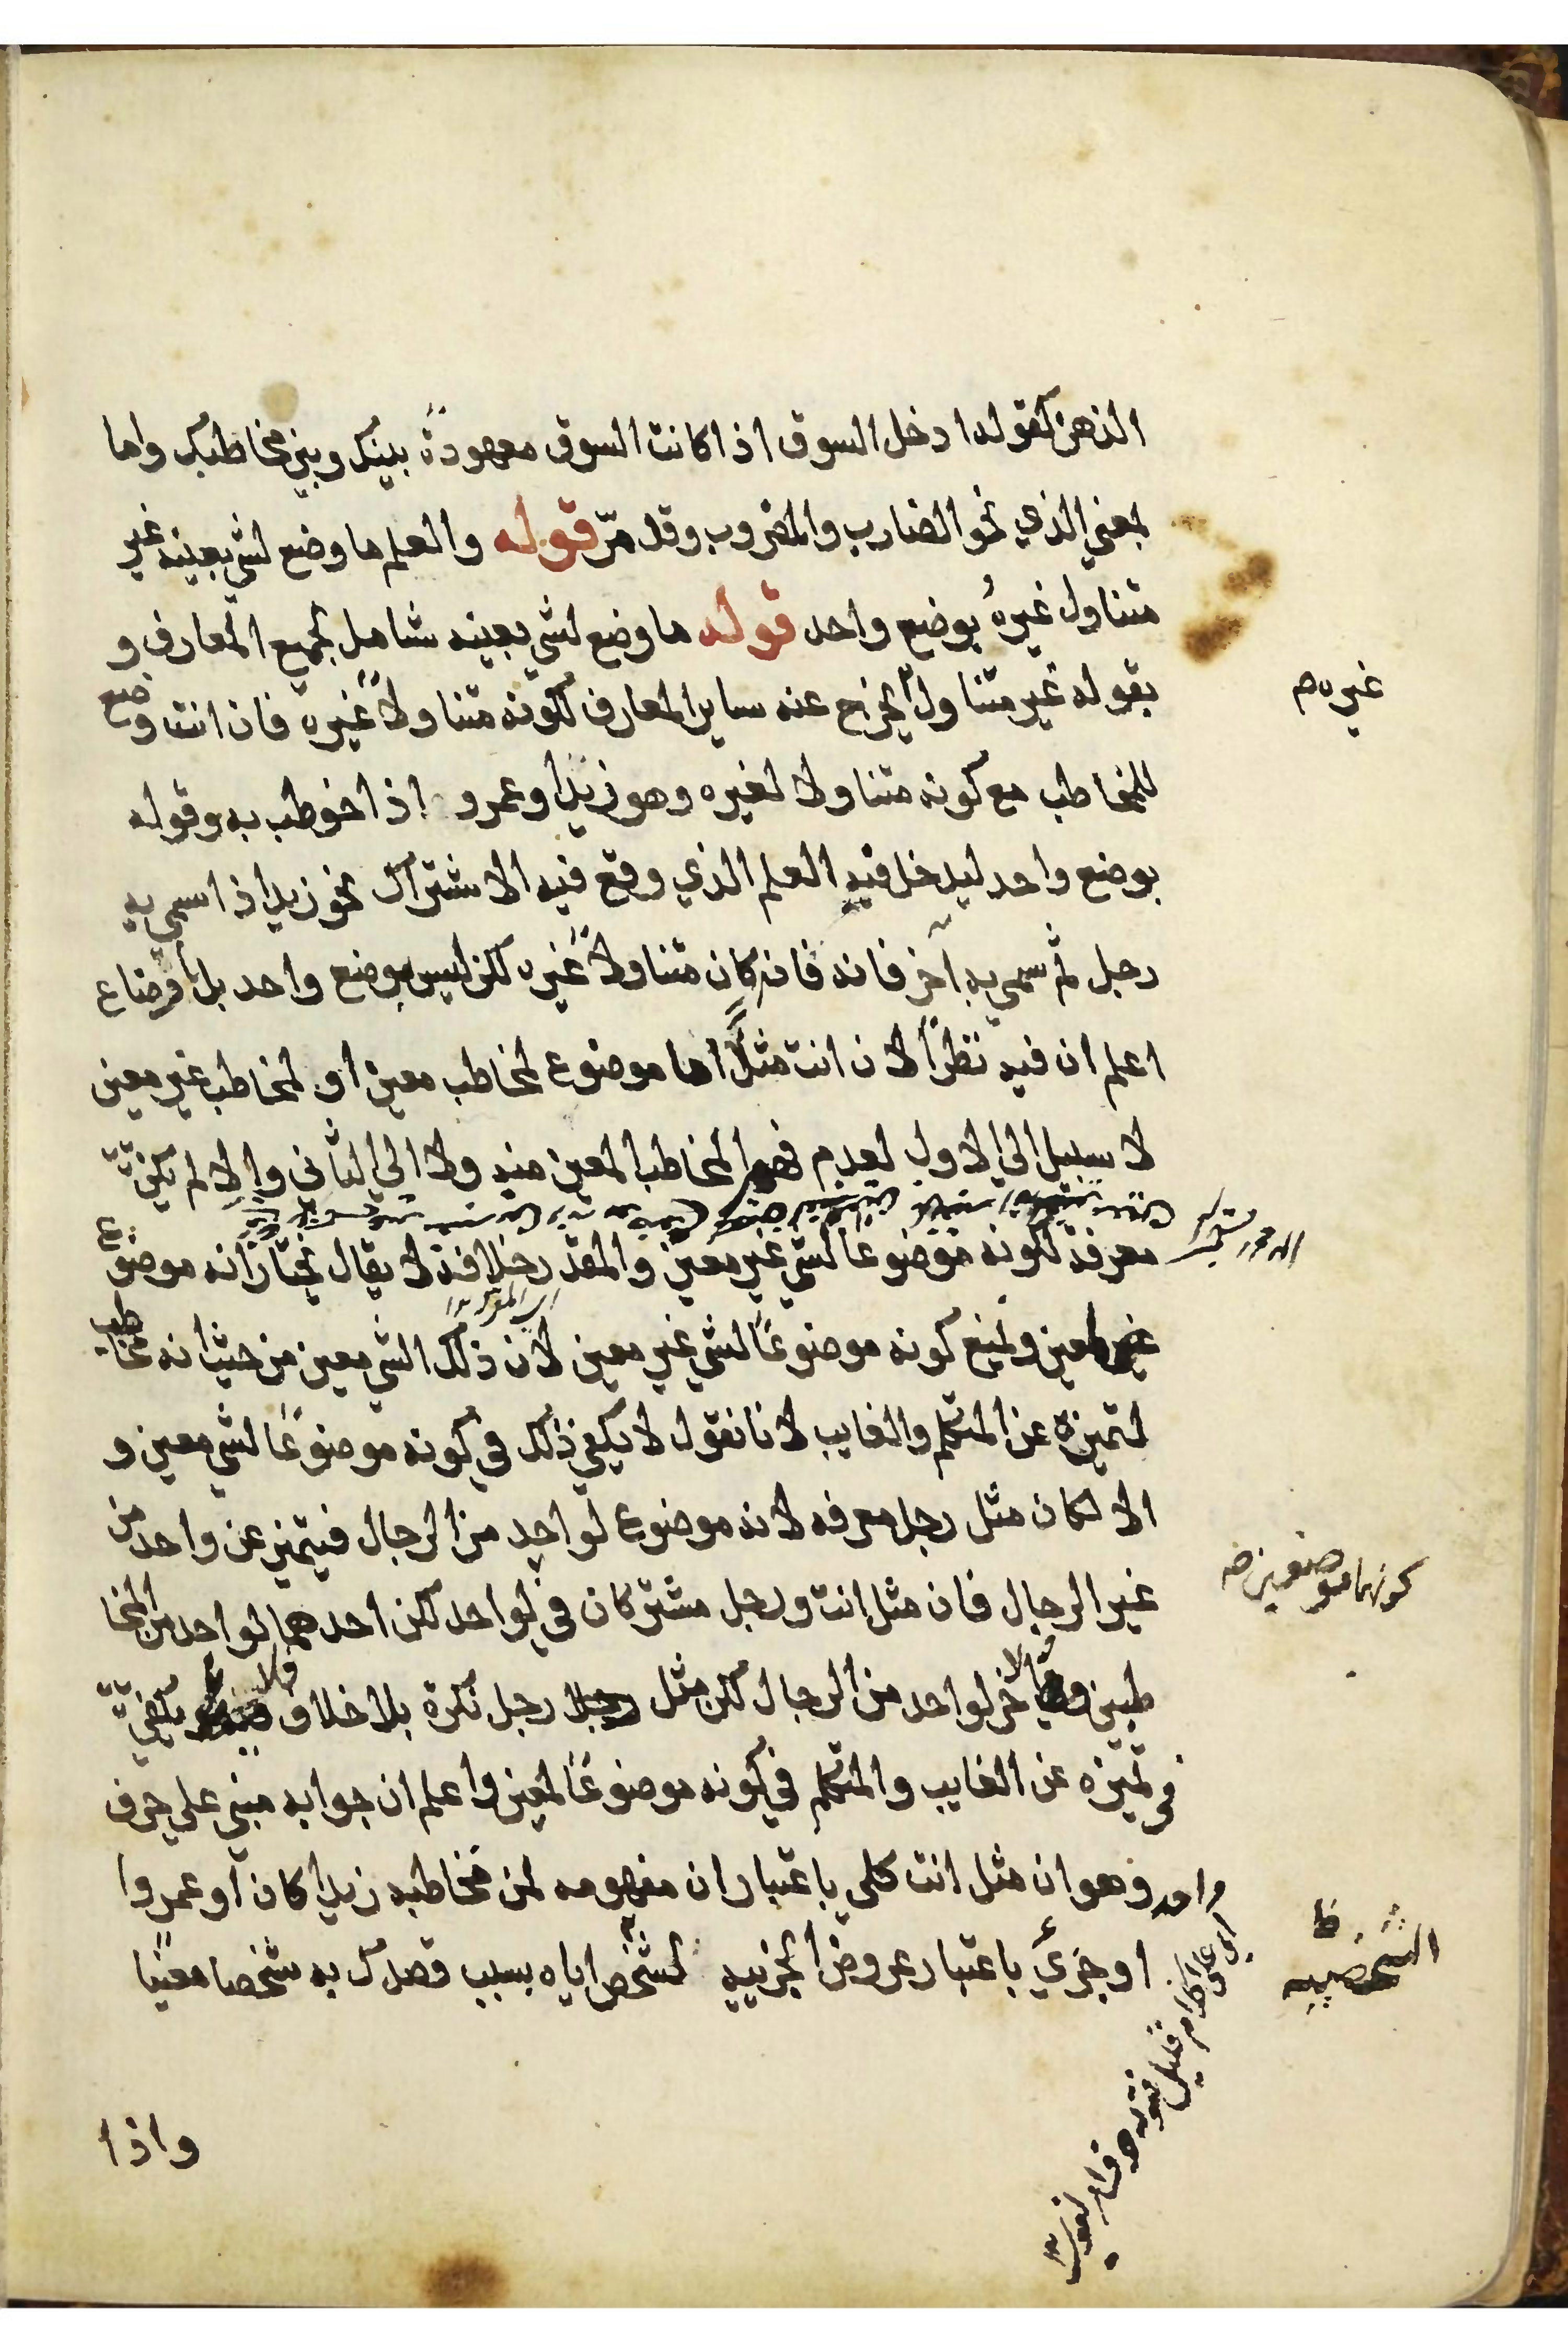 الذهن كقولك ادخل السوق اذا كانت السوق معهودة بينك وبين مخاطبك واما
بمعني الذي نحو الضارب والمضروب وقد مرّ قوله والعلم ما وضع لشي بعينه غير
متناول غيره بوضع واحد قوله ما وضع لشي بعينه شامل لجميع المعارف و
بقوله غير متناول يخرج عنه ساير المعارف لكونه متناولاً غيره فان انت وضع
للمخاطب مع كونه متناولا لغيره وهو زيد او عمرو اذا خوطب به وقوله
بوضع واحد ليدخل فيه العلم الذي وقع فيه الاشتراك نحو زيد اذا سمي به
رجل ثم سمي به آخر فانه فان كان متناولاً غيره لكن ليس بوضع واحد بل باوضاع
اعلم ان فيه نظراً لان انت مثلاً اما موضوع لمخاطب معين او لمخاطب غير معين
لا سبيل الي الاول لعدم فهم المخاطب المعين منه ولا الي الثاني والا لم يكن
معرفة لكونه موضوعاً لشي غير معين والمقدر خلافه لا يقال نختار انه موضوع
غير معين ونمنع كونه موضوعاً لشي غير معين لان ذلك الشي معين من حيث انه مخاطب
لتميزه عن المتكلم والغايب لانا نقول لا يكفي ذلك في كونه موضوعاً لشي معين و
الا لكان مثل رجل معرفه لانه موضوع لواحد من الرجال فيتميز عن واحد من
غير الرجال فان مثل انت ورجل مشتركان في لواحد لكن احدهما لواحد من المخا
طبين والآخر لواحد من الرجال لكن مثل رجل نكرة بلا خلاف فلا يكفي
في تميزه عن الغايب والمتكلم في كونه موضوعاً لمعين واعلم ان جوابه مبني علي حرف
واحد وهو ان مثل انت كلي باعتبار ان مفهومه لمن مخاطبه زيدا كان او عمروا
او جزئي باعتبار عروض الجزييه لشخص اياه بسبب قصدك به شخصا معينا
واذا
غيره م
كونهما موضوعين صه
الشخصيه
ظ